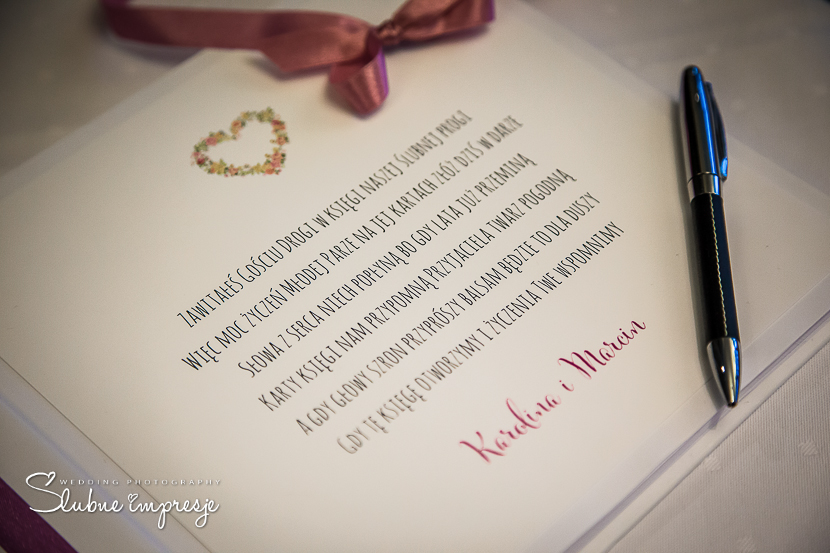 Zawitałeś Gościu Drogi w księgi naszej ślubnej progi
Więc moc życzeń Młodej Parze na jej kartach złóż dziś w darze
Słowa z serca niech popłyną bo gdy lata już przeminą
Karty księgi nam przypomną przyjaciela twarz pogodną
A gdy głowy szron przyprószy balsam będzie to dla duszy
Gdy tę księgę otworzymy i życzenia Twe wspomnimy
Karolina i Marcin
WEDDING PHOTOGRAPHY
Ślubne impresje